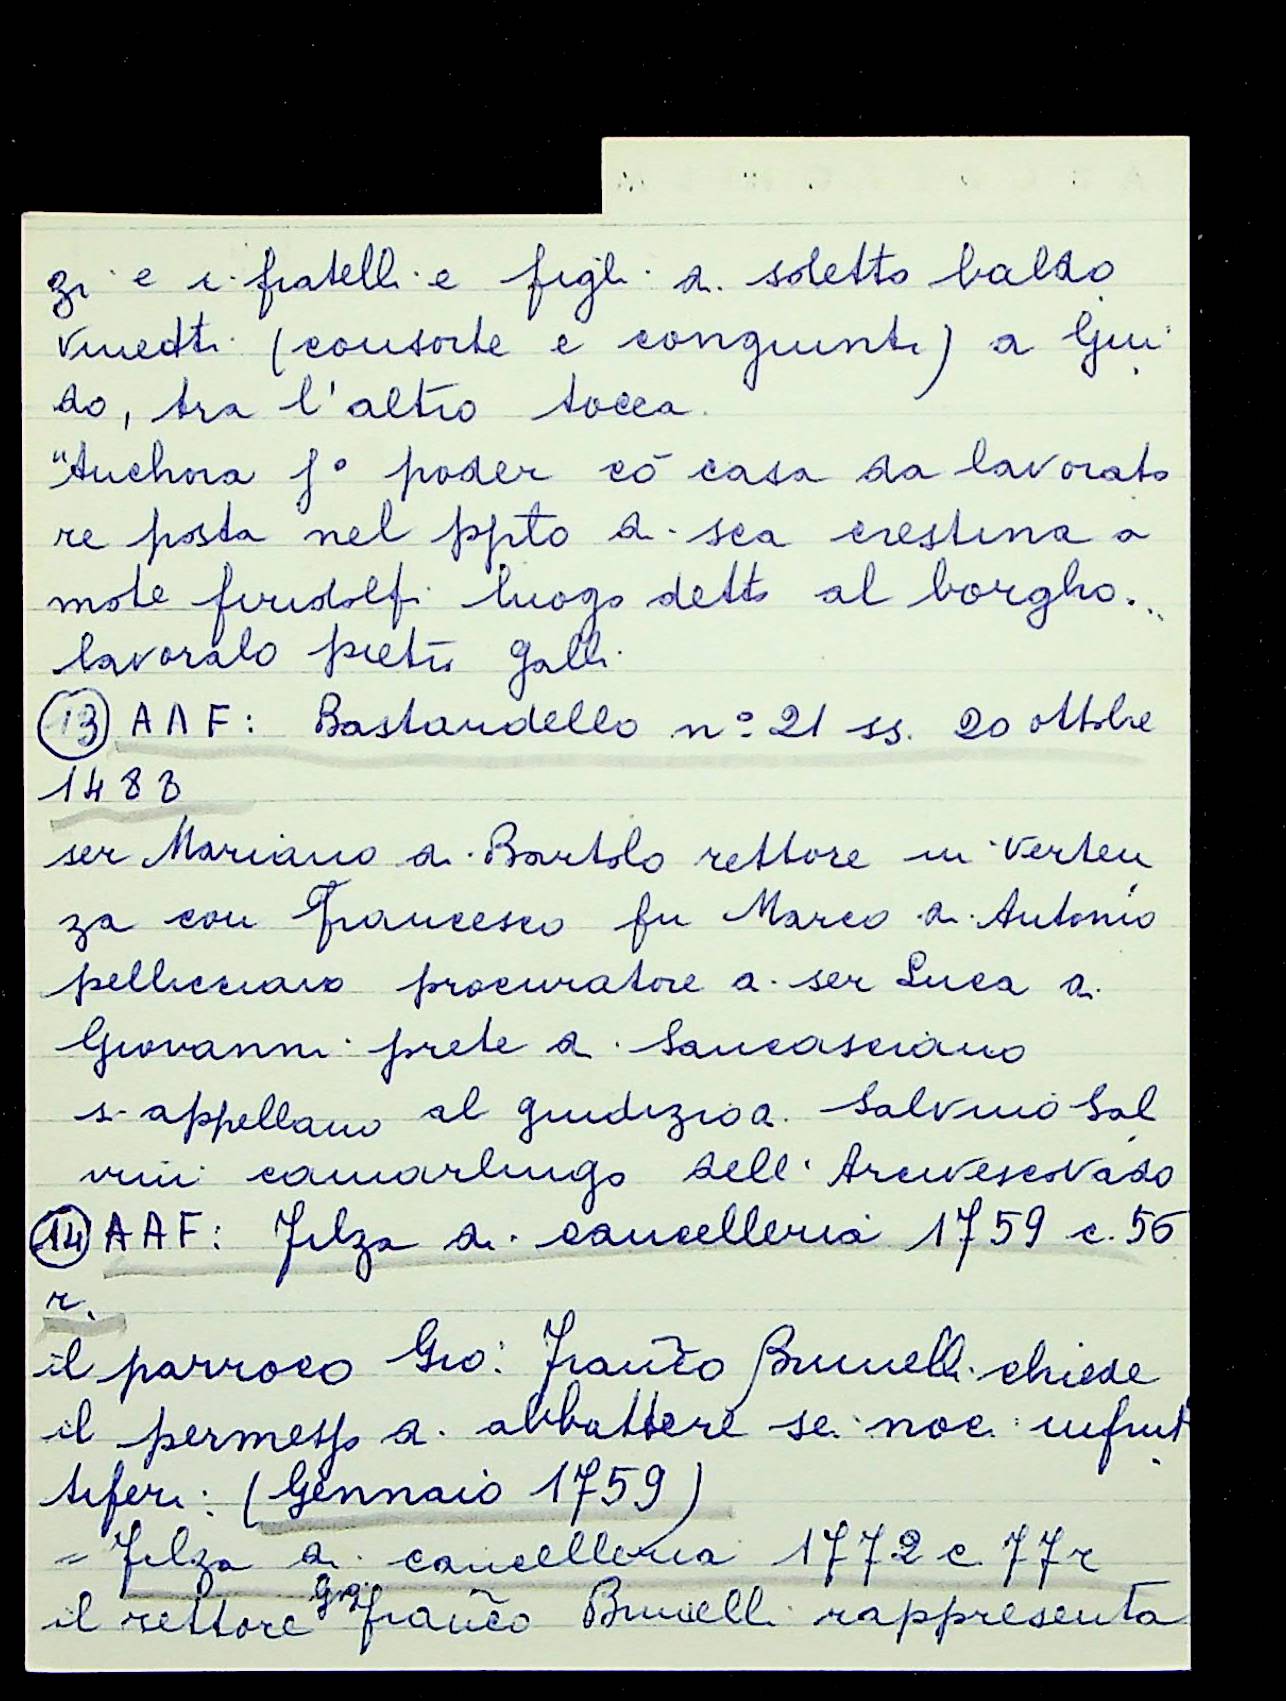 zi e i fratelli e figli di sdetto baldo
vinedti (consorte e congiunti) a Gui
do, tra l'altro tocca.
"Anchora jº poder cō casa da lavorato
re posta nel ppto di sca crestina a
mote firidolfi luogo detto al borgho..
lavoralo pietro galli"
(13) AAF: Bastardello nº 21 ss. 20 ottobre
1483
ser Mariano di Bartolo rettore in verten
za con Francesco fu Marco di Antonio
pellicciaio procuratore di ser Luca di
Giovanni prete di Sancasciano
si appellano al giudizio di Salvino Sal
vini camarlingo dell'Arcivescovado
(14) AAF: Filza di cancelleria 1759 c. 56
r.
il parroco Gio: Franc̄o Brunelli chiede
il permesso di abbattere sei noci infrut
tiferi: (Gennaio 1759)
= Filza di cancelleria 1772 c 77r
il rettore Gio: Franc̄o Brunelli rappresenta